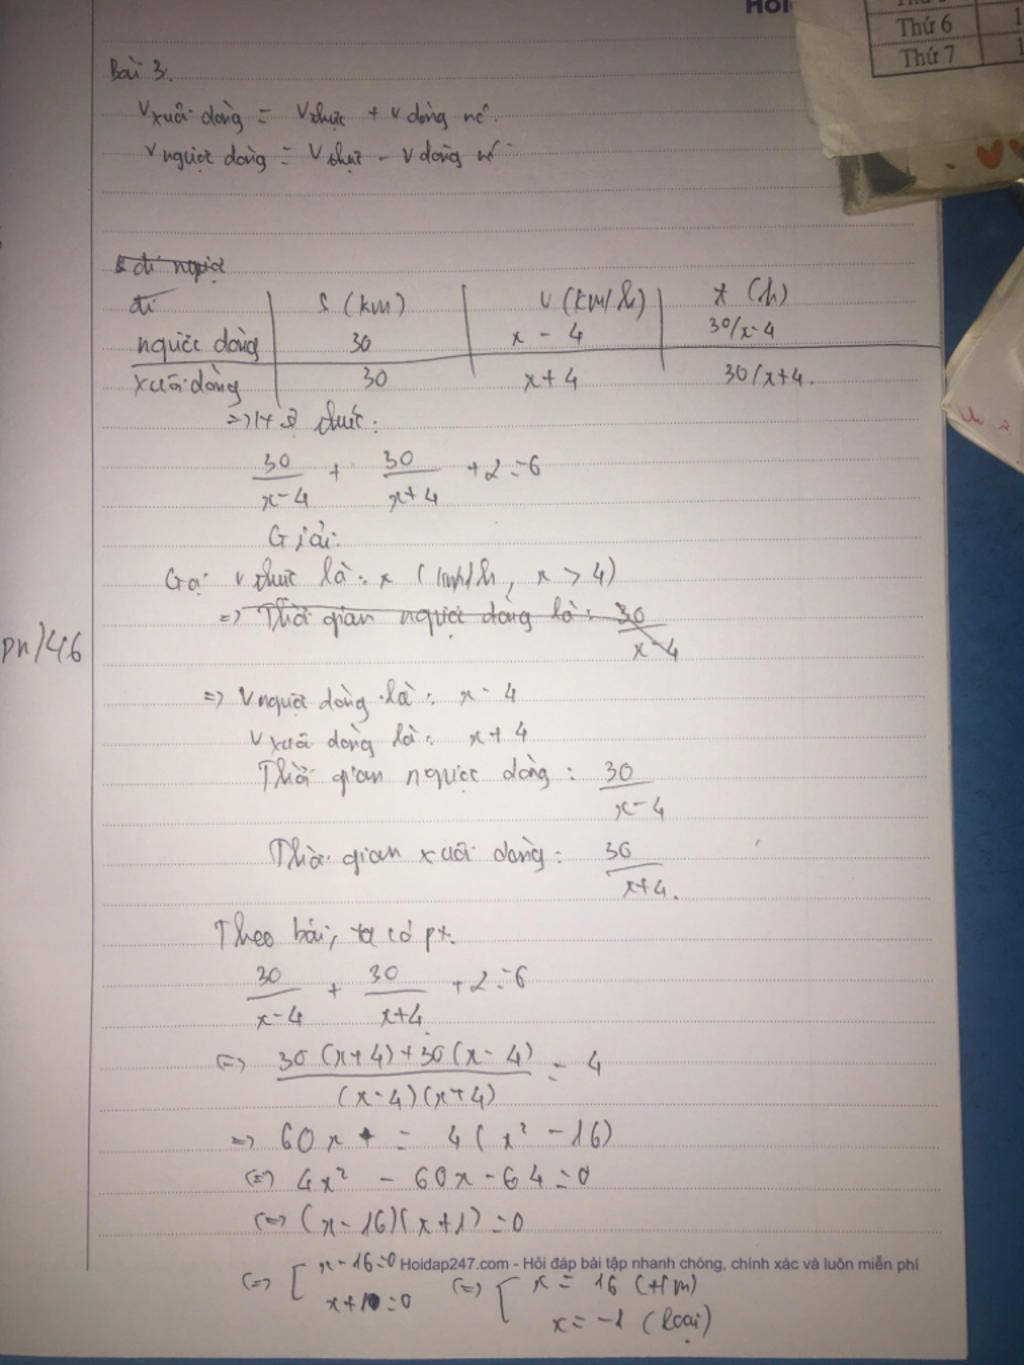 Hoi
Thứ 6 1
Thứ 7 1
Bài 3.
v xuôi dòng = v thực + v dòng nc.
v ngược dòng = v thực - v dòng nc
đi ngược
đi S (km) v (km/h) t (h)
ngược dòng 30 x - 4 30/x-4
xuôi dòng 30 x+4 30/x+4.
thức:
30/(x-4) + 30/(x+4) + 2 = 6
Giải:
Gọi v thực là: x (km/h, x > 4)
=> Thời gian ngược dòng là: 30/(x-4)
pn/46
=> v ngược dòng là: x - 4
v xuôi dòng là: x + 4
Thời gian ngược dòng: 30/(x-4)
Thời gian xuôi dòng: 30/(x+4).
Theo bài, ta có pt.
30/(x-4) + 30/(x+4) + 2 = 6
<=> (30(x+4)+30(x-4))/((x-4)(x+4)) = 4
=> 60x = 4(x² - 16)
<=> 4x² - 60x - 64 = 0
<=> (x-16)(x+1) = 0
Hoidap247.com - Hỏi đáp bài tập nhanh chóng, chính xác và luôn miễn phí
<=> [ x-16=0 <=> [ x = 16 (t/m)
x+1=0 x = -1 (loại)